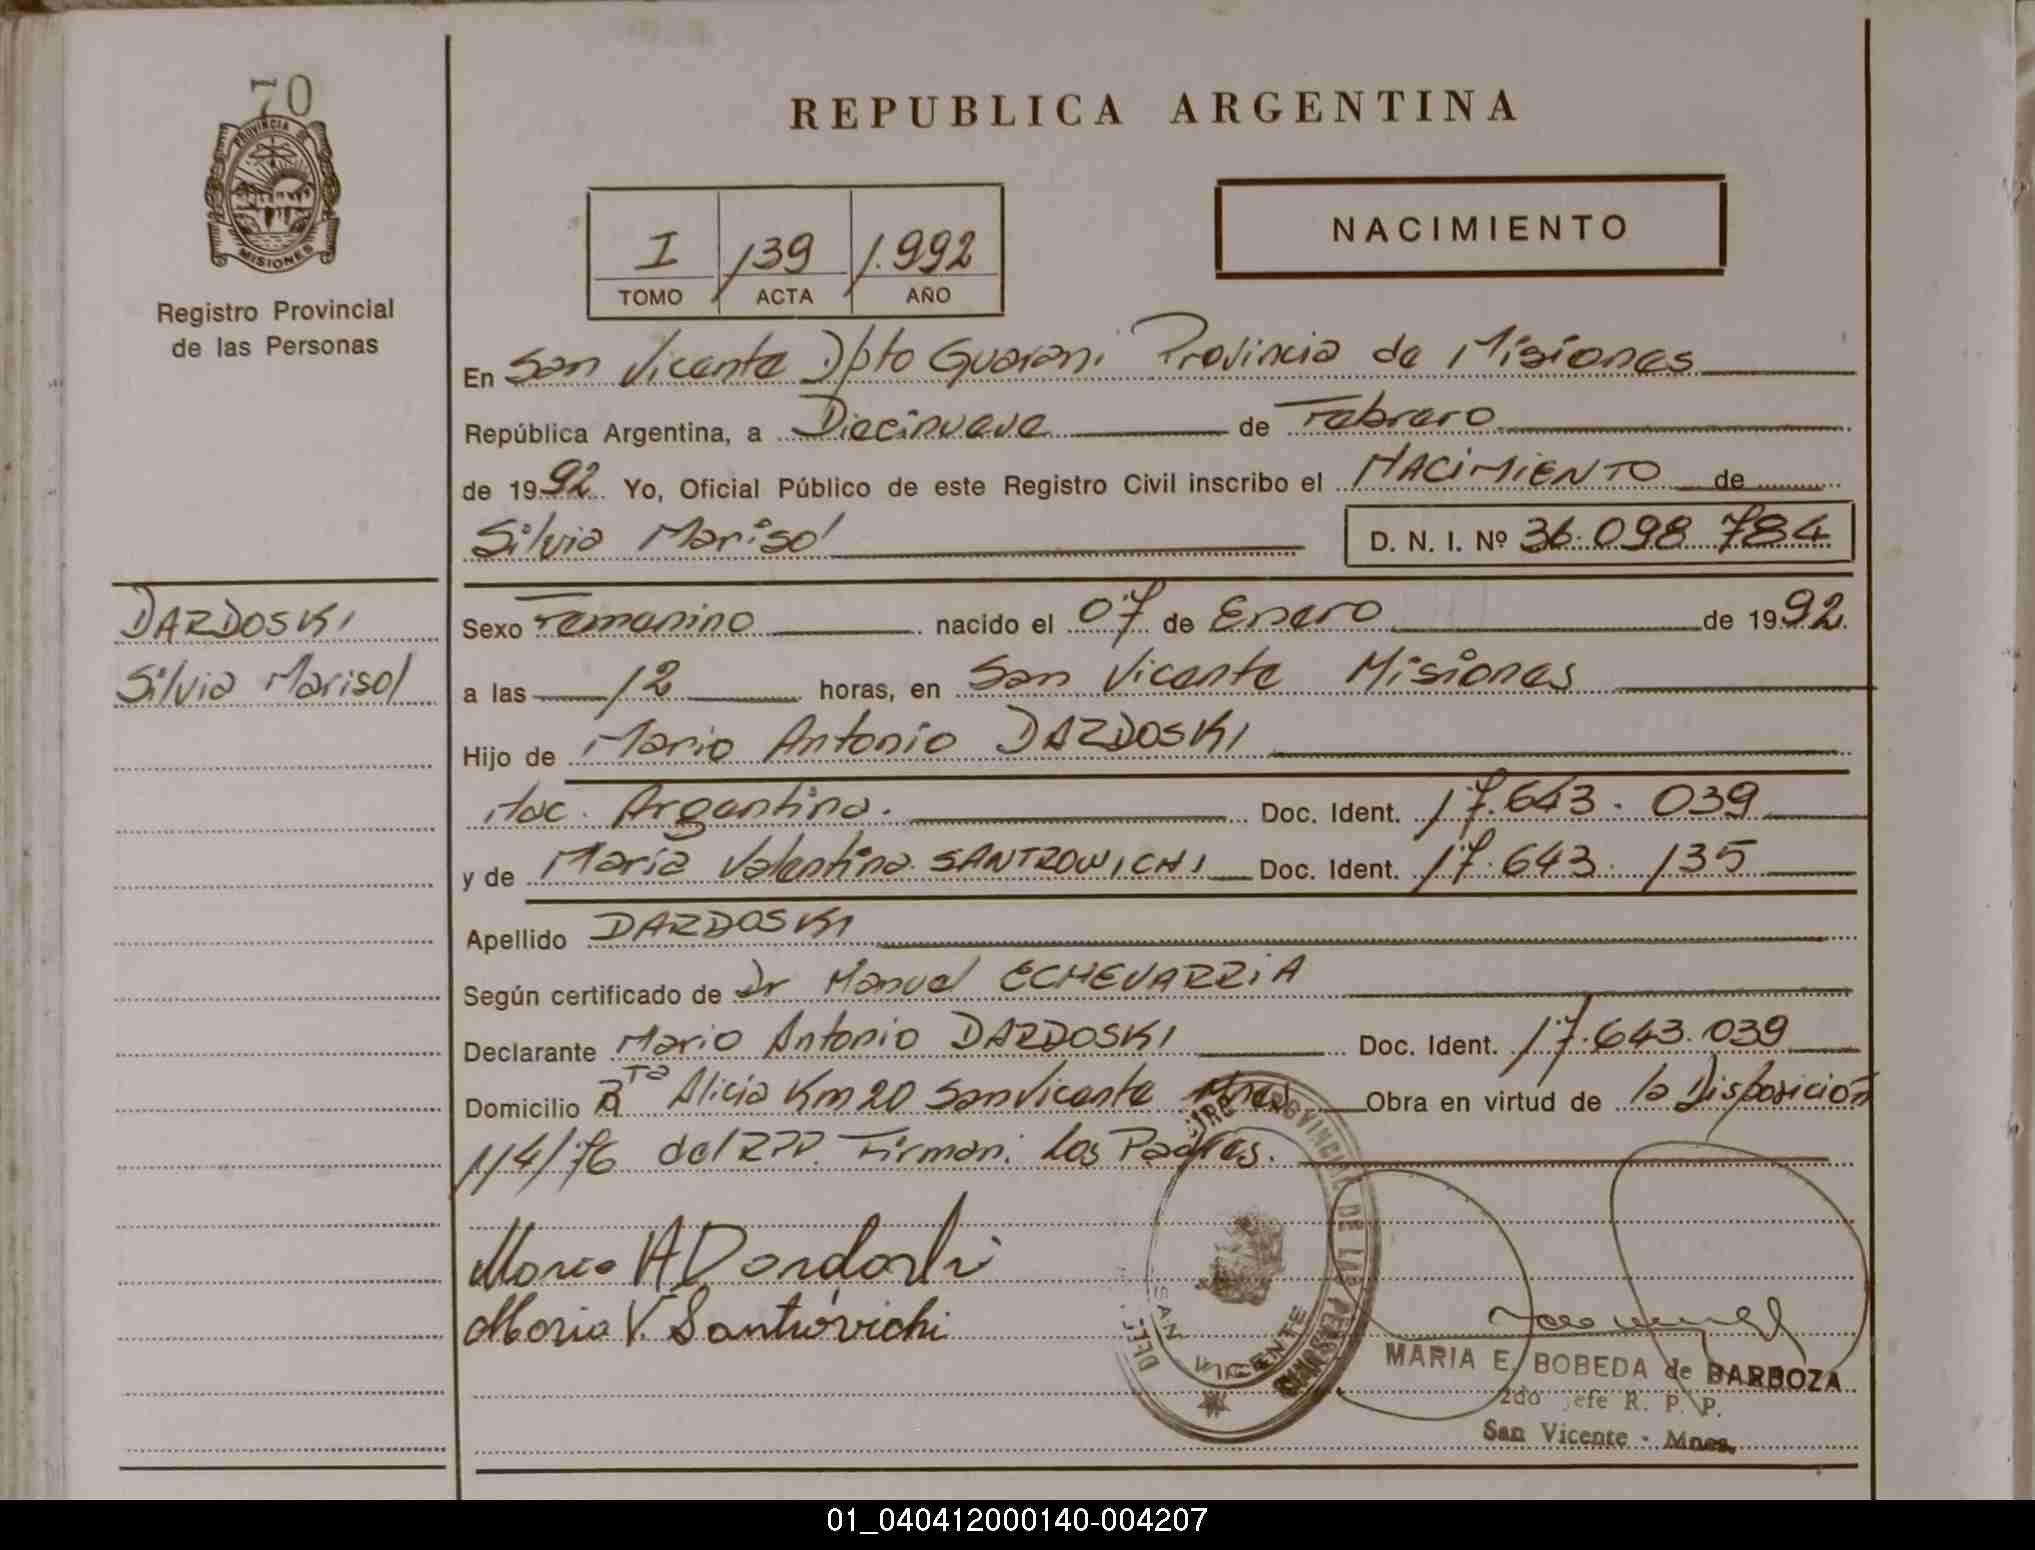 70
PROVINCIA DE
MISIONES
Registro Provincial
de las Personas
REPUBLICA ARGENTINA
I 139 1.992
TOMO ACTA AÑO
NACIMIENTO
En San Vicente Dpto Guarani Provincia de Misiones
República Argentina, a Diecinueve de Febrero
de 1992 Yo, Oficial Público de este Registro Civil inscribo el NACIMIENTO de
Silvia Marisol D. N. I. Nº 36.098.784
DARDOSKI
Silvia Marisol
Sexo Femenino nacido el 07 de Enero de 1992.
a las 12 horas, en San Vicente Misiones
Hijo de Mario Antonio DARDOSKI
Nac. Argentina. Doc. Ident. 17.643.039
y de Maria Valentina SANTROWICHI Doc. Ident. 17.643.135
Apellido DARDOSKI
Según certificado de Dr Manuel ECHEVARRIA
Declarante Mario Antonio DARDOSKI Doc. Ident. 17.643.039
Domicilio Pta Alicia Km 20 San Vicente Mnes Obra en virtud de la Disposición
114/76 del RPP. Firman: los Padres.
Mario A Dardoski
Maria V. Santrovichi
REGISTRO PROVINCIAL DE LAS PERSONAS
SAN VICENTE
MARIA E. BOBEDA de BARBOZA
2do Jefe R. P. P.
San Vicente - Mnes.
01_040412000140-004207